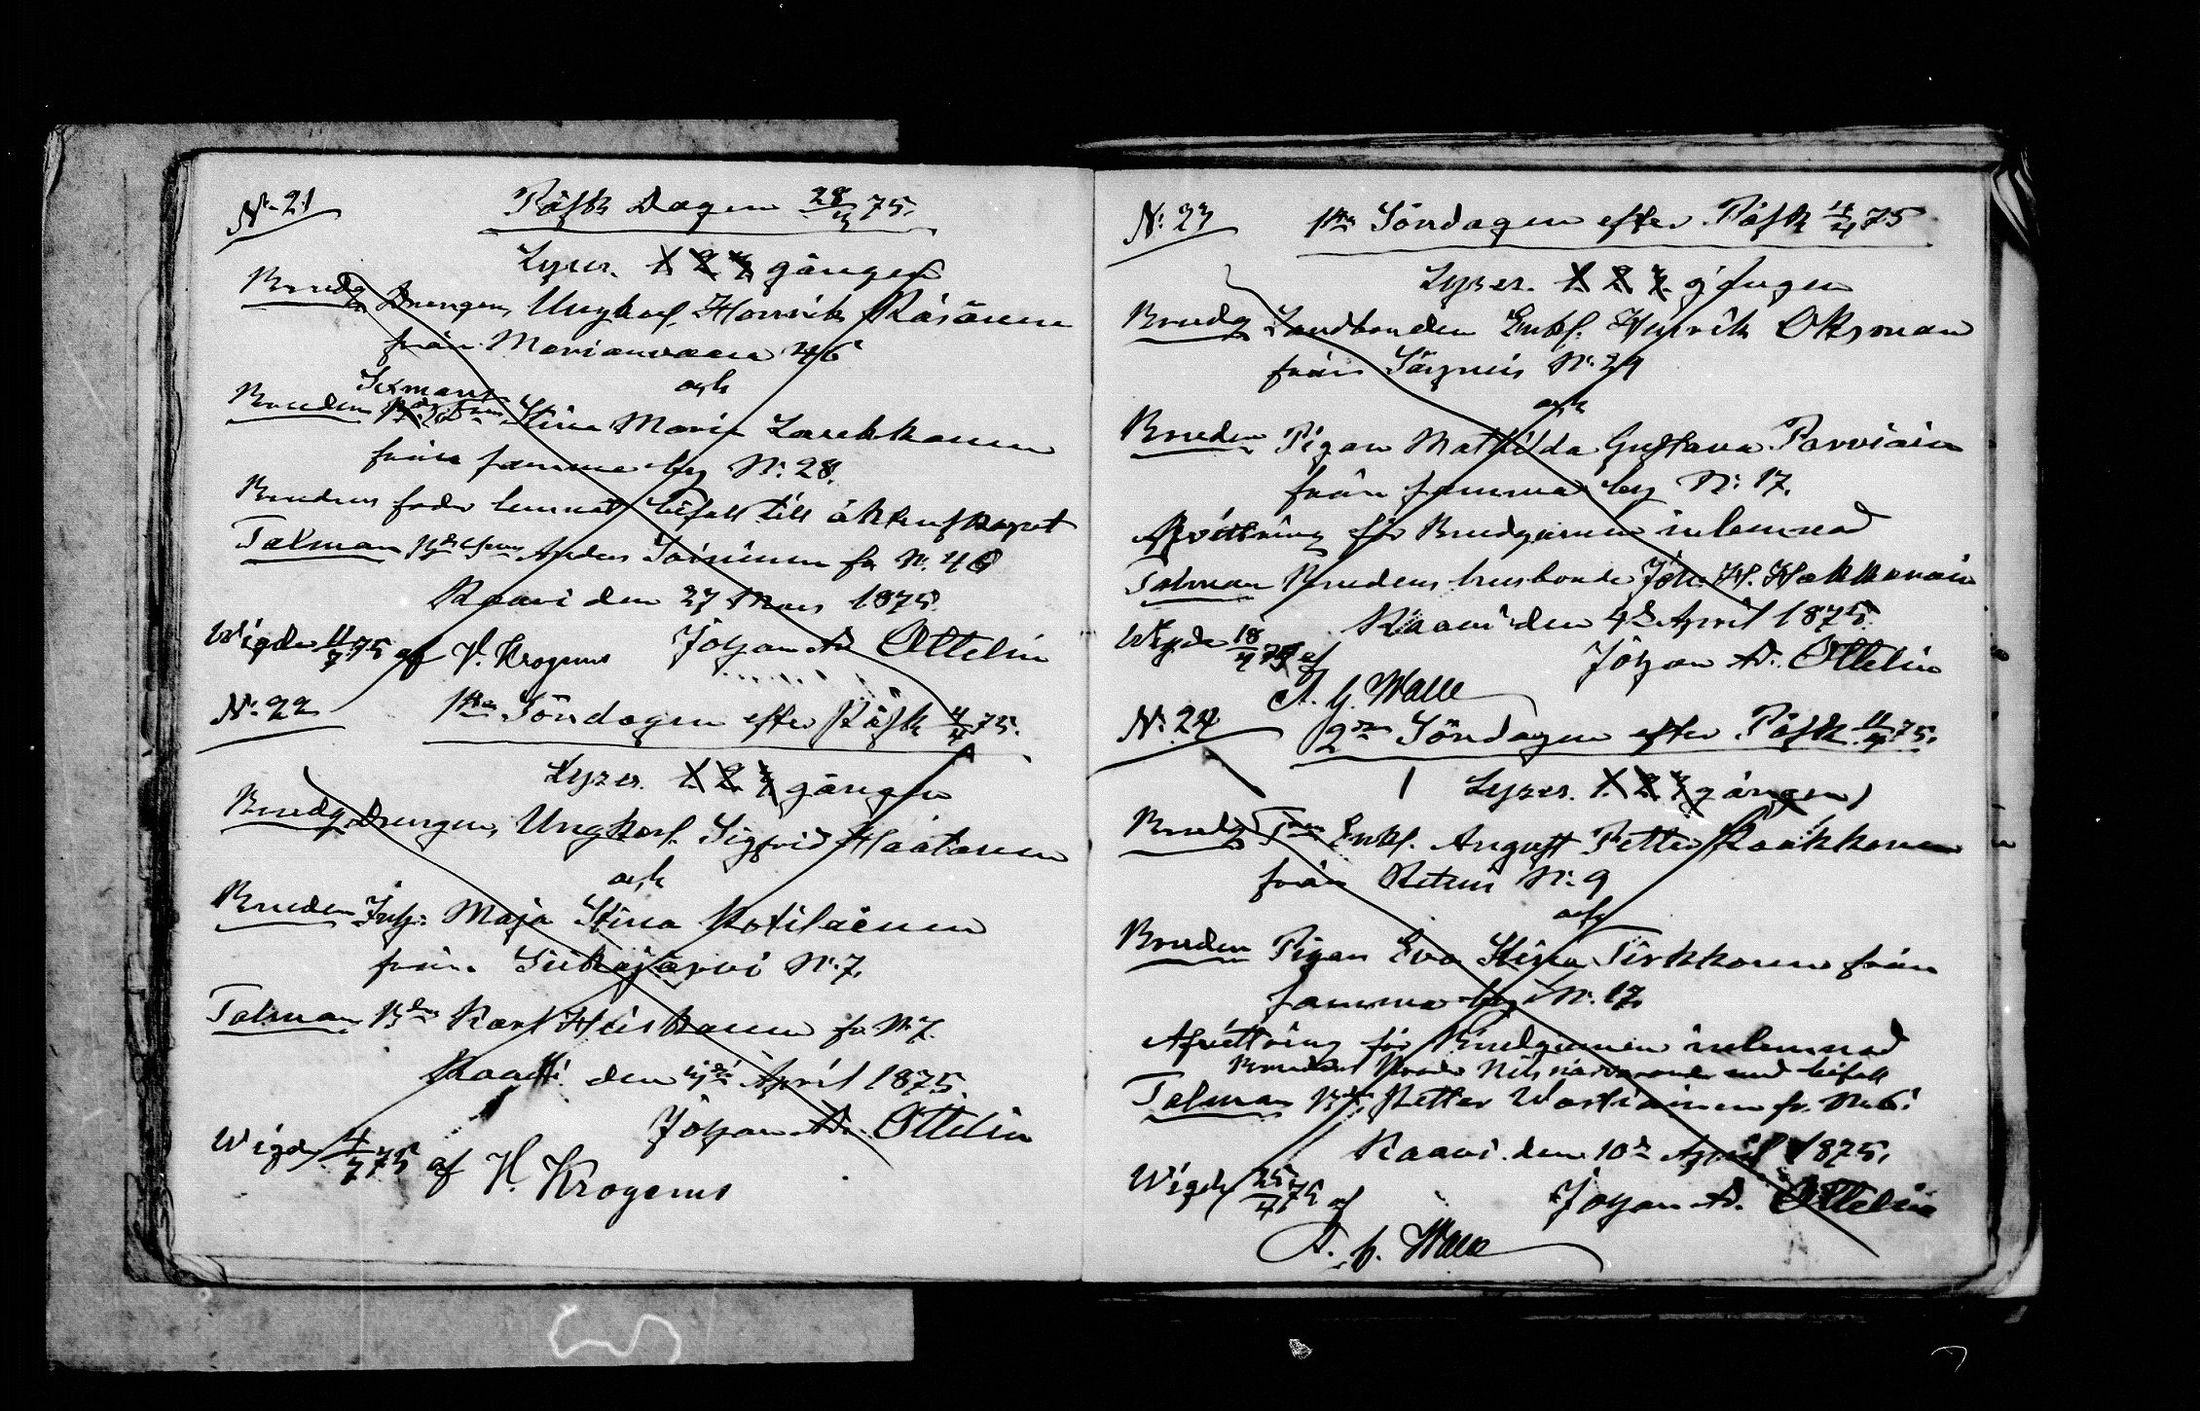 N:o 21
Påsk Dagen 28/3 75.
Lyses. 1 2 3 gången
Brudg. Drengen, Ungkarl. Henrik Räsänen
från Marianvaara 46
och
Inhmans
Bruden Stina Maria Laukkanen
från samma by N: 28.
Brudens fader lemnat bifall till äktenskapet
Talman Anders Toivinen fr N. 46
Kaavi den 27 Mars 1875.
Wigde 11/4 75 af H. Krogerus Johan Ad. Ottelin
N: 22
1sta Söndagen efter Påsk 4/4 75.
Lyses. 1. 2. 3 gången
Brudg. Drengen, Ungkarl. Sigfrid Haatanen
och
Bruden Inh: Maja Stina Kotilainen
från Siikajärvi N: 7.
Talman Bdn Karl Heiskanen fr N 7.
Kaavi den 3dje April 1875.
Johan Ad. Ottelin
Wigde 4/7 75 af H. Krogerus
N: 23
1sta Söndagen efter Påsk 4/4 75
Lyses. 1. 2. 3. gången
Brudg Landbonden Enkl. Henrik Oksman
från N: 29
och
Bruden Pigan Mathilda Gustava Parviain
från samma by N: 17.
Afvittring för Brudgumen inlemnad
Talman Brudens husbonde Joh. H. Hakkarain
Kaavi den 4de April 1875.
Johan Ad. Ottelin
Wigde 18/4 75 af
A. G. Walle
N: 24
2dra Söndagen efter Påsk 11/4 75.
Lyses. 1. 2. 3 gången
Brudg Enkl. August Petter Kaukkonen
från Retuni N: 9
och
Bruden Pigan Eva Stina Tirkkonen från
samma by N: 17.
Afvittring för Brudgumen inlemnad
Brudens Broder Nils närvarande med bifall
Talman Petter Wartiainen fr. N: 6.
Kaavi den 10de April 1875.
Johan Ad. Ottelin
Wigde 25/4 75 af
A. G. Walle